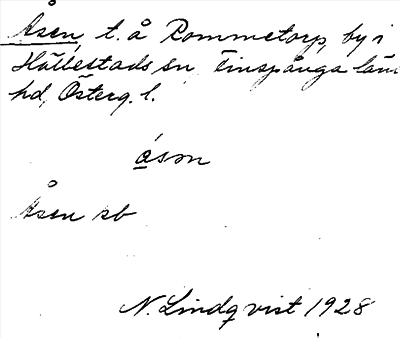 Åsen, t. å Rommetorp, by i
Hällestads sn, Finspånga läns
hd, Österg. l.
ásən
Åsen sb
N. Lindqvist 1928